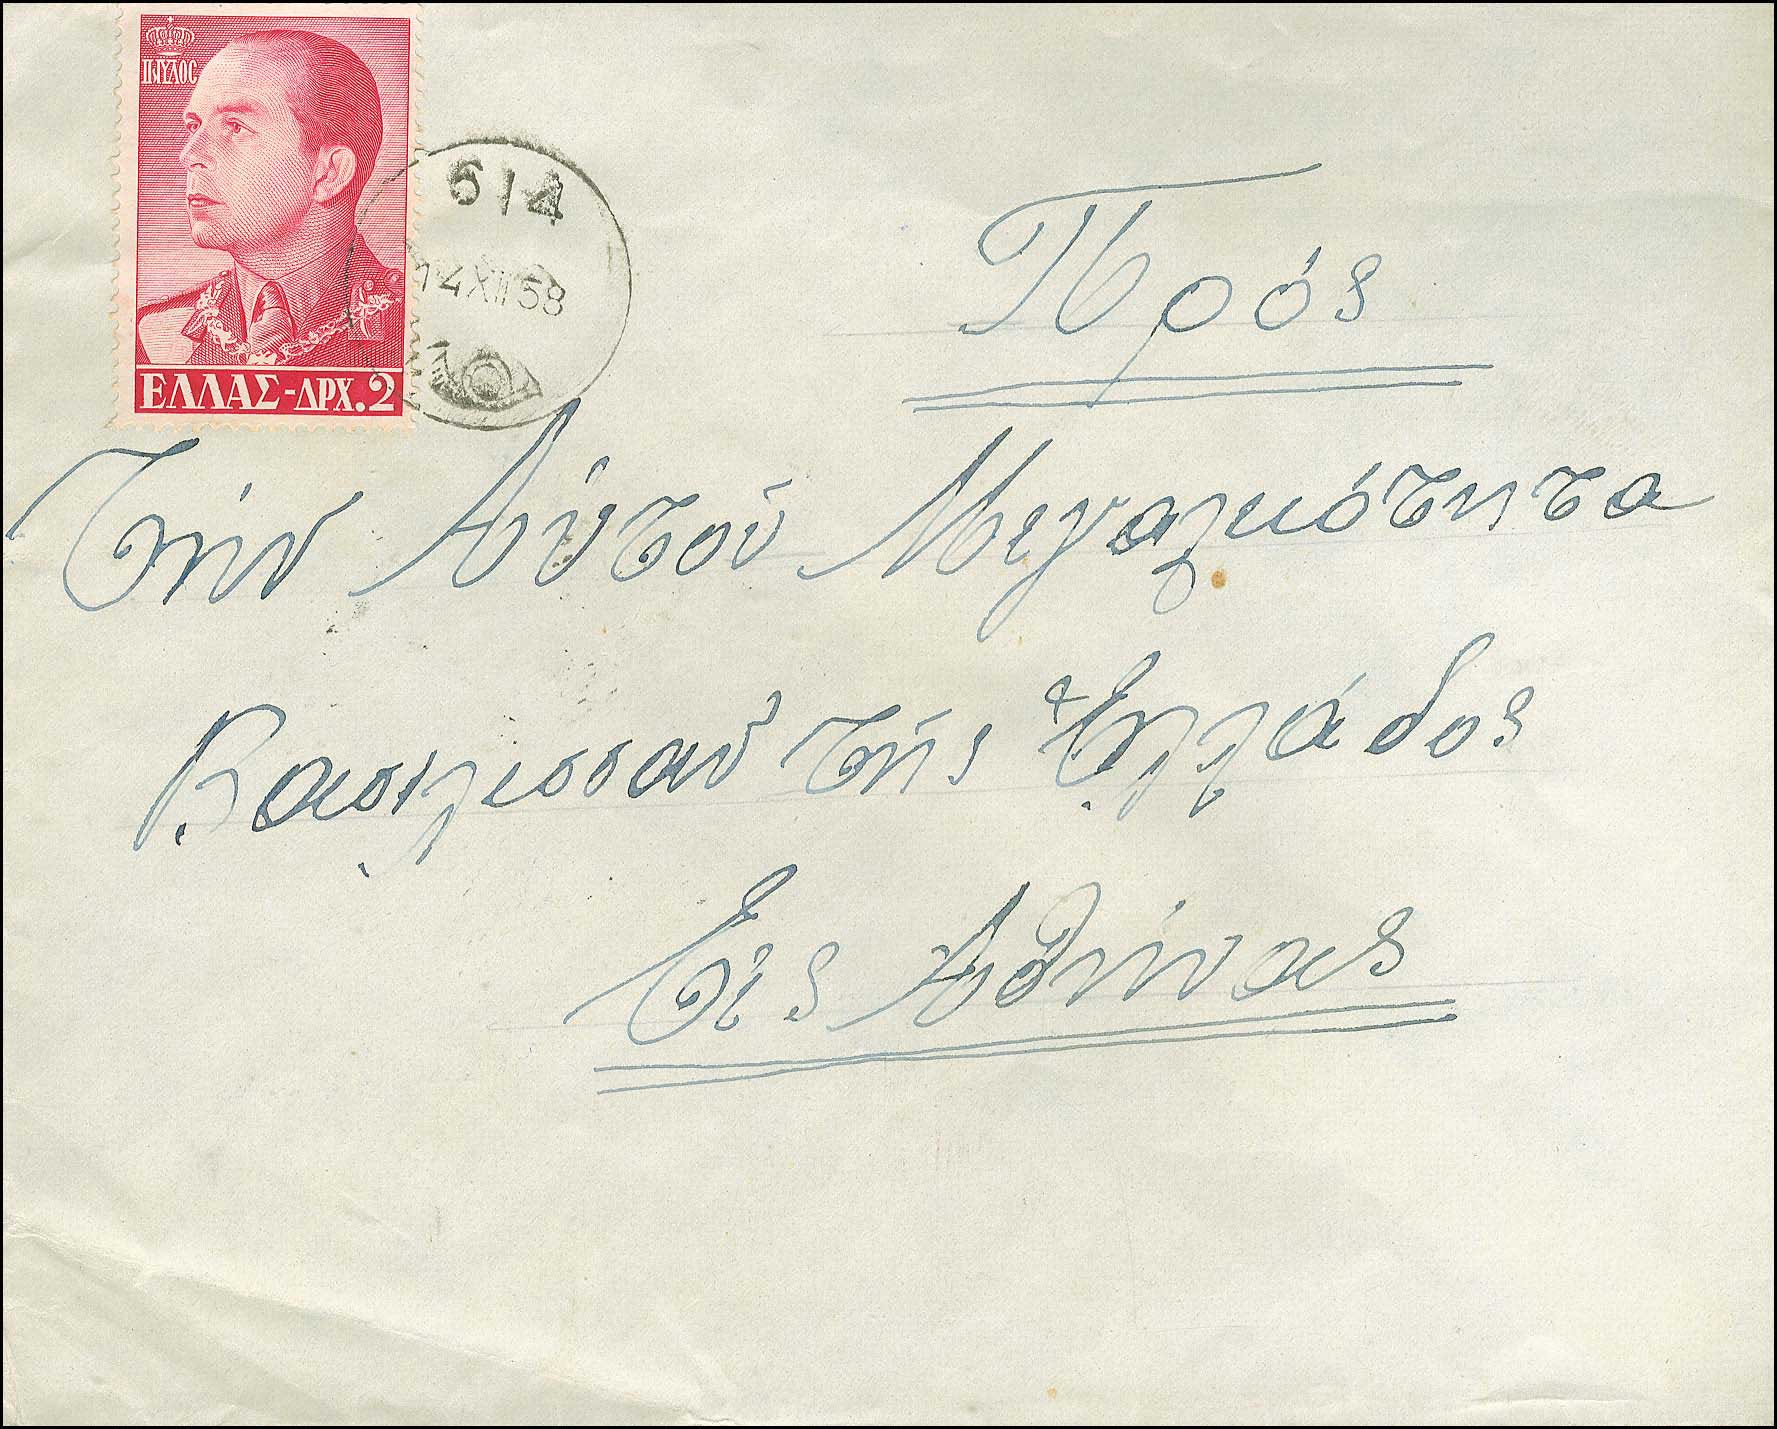 ΠΑΥΛΟΣ
ΕΛΛΑΣ-ΔΡΧ.2
614
14 XII 58
Πρός
Τήν Αὐτοῦ Μεγαλειότητα
Βασιλισσαν τῆς Ἑλλάδος
Εἰς Ἀθήνας